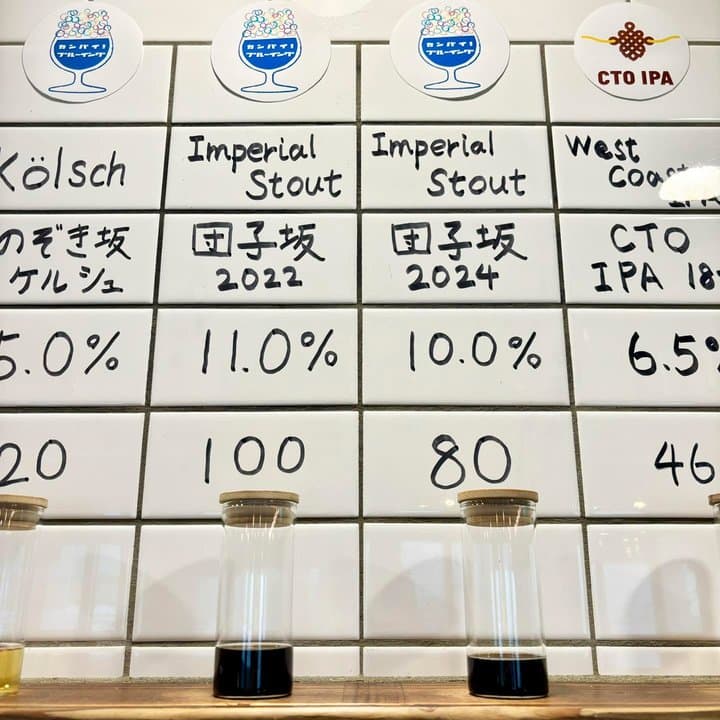 カンパイ!
ブルーイング
Kölsch
のぞき坂
ケルシュ
5.0%
20
カンパイ!
ブルーイング
Imperial
Stout
団子坂
2022
11.0%
100
カンパイ!
ブルーイング
Imperial
Stout
団子坂
2024
10.0%
80
CTO IPA
West
Coast
IPA
CTO
IPA
6.5%
46